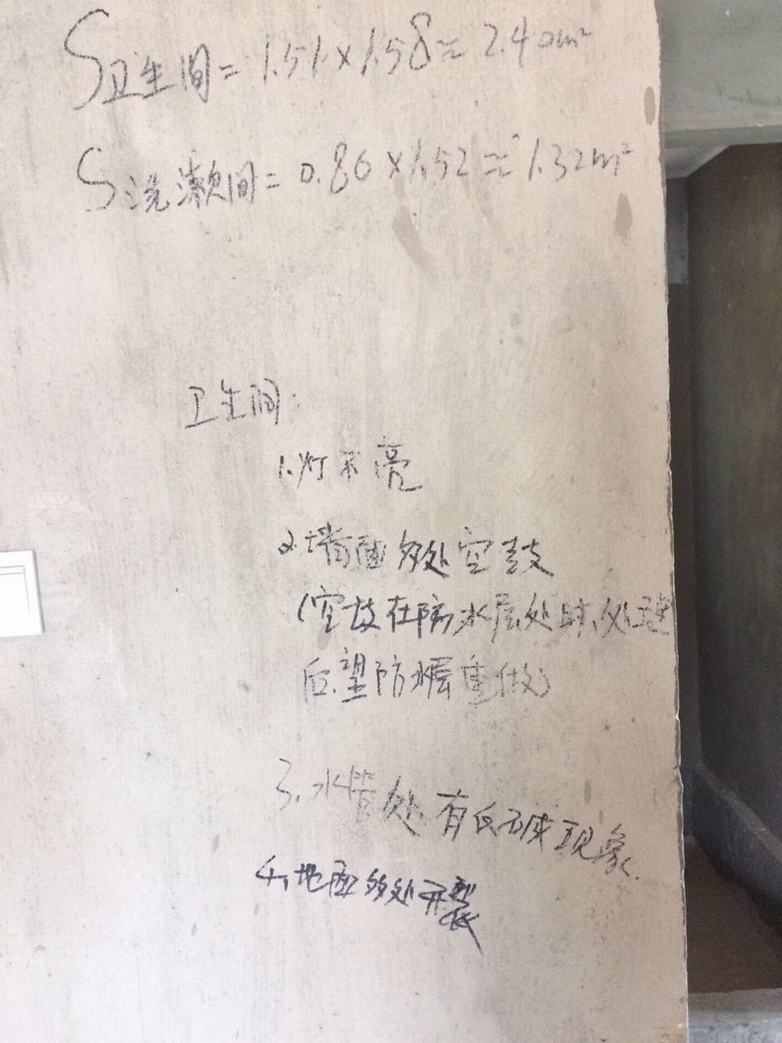 S卫生间=1.51×1.58≈2.40m²
S洗漱间=0.86×1.52≈1.32m²
卫生间:
1.灯不亮
2.墙面多处空鼓
(空鼓在防水层处时,处理
后望防水层重做)
3.水管处有反碱现象.
4,地面多处开裂